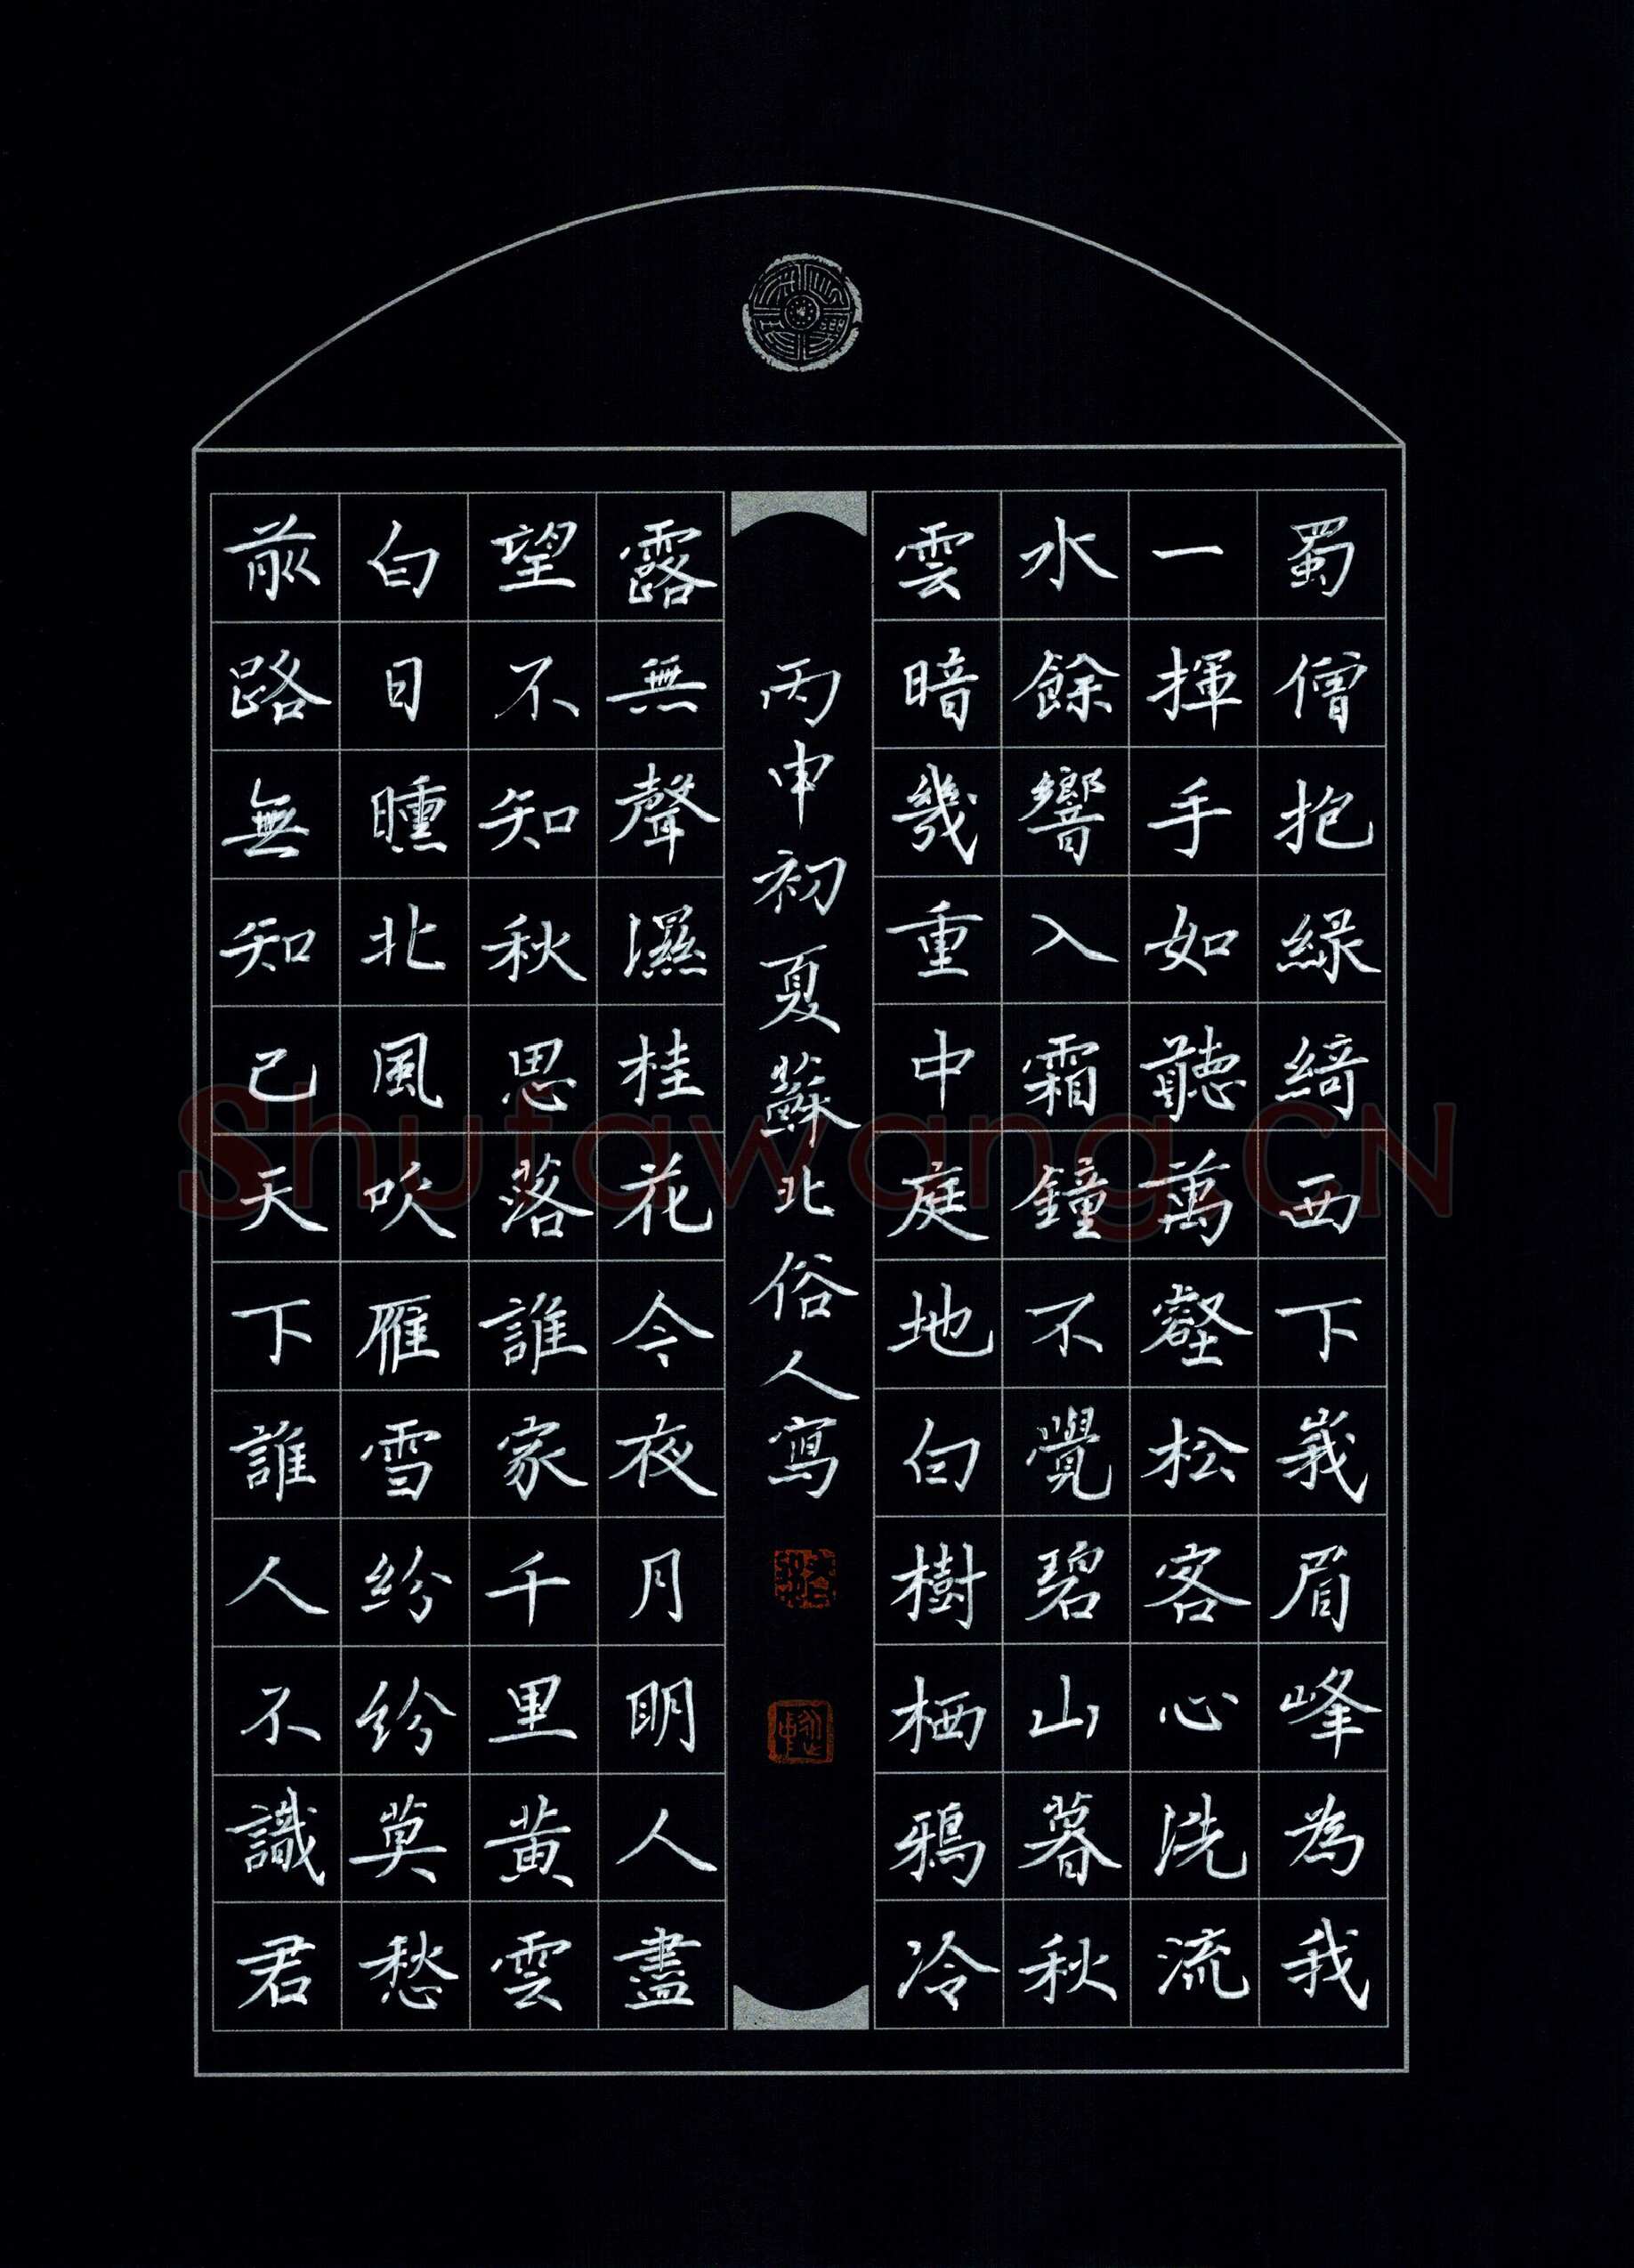 蜀僧抱緑綺西下峩眉峰為我
一揮手如聽萬壑松客心洗流
水餘響入霜鐘不覺碧山暮秋
雲暗幾重中庭地白樹栖鴉冷
丙申初夏蘇北俗人寫
露無聲濕桂花今夜月明人盡
望不知秋思落誰家千里黃雲
白日曛北風吹雁雪紛紛莫愁
前路無知己天下誰人不識君
Shufawang.CN